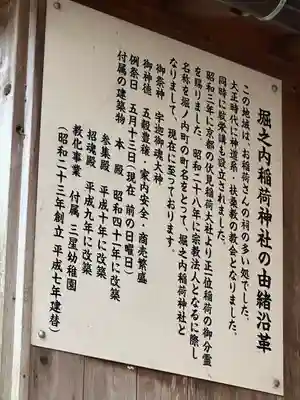 堀之内稲荷神社の由緒沿革
この地域は、お稲荷さんの祠の多い処でした。
大正時代に神道系・扶桑教の教会となりました。
同時に敬栄講も設立されました。
昭和三年に京都の伏見稲荷大社より正一位稲荷の御分霊
を賜りました。昭和二十八年に宗教法人となるに際し
名称を堀ノ内町の町名をとって、堀之内稲荷神社と
なりまして、現在に至っております。
御祭神 宇迦御魂大神
御神徳 五穀豊穣・家内安全・商売繁盛
例祭日 五月十三日(現在 前の日曜日)
付属の建築物 本殿 昭和四十一年に改築
参集殿 平成十年に改築
招魂殿 平成九年に改築
教化事業 付属 三星幼稚園
(昭和二十三年創立 平成七年建替)